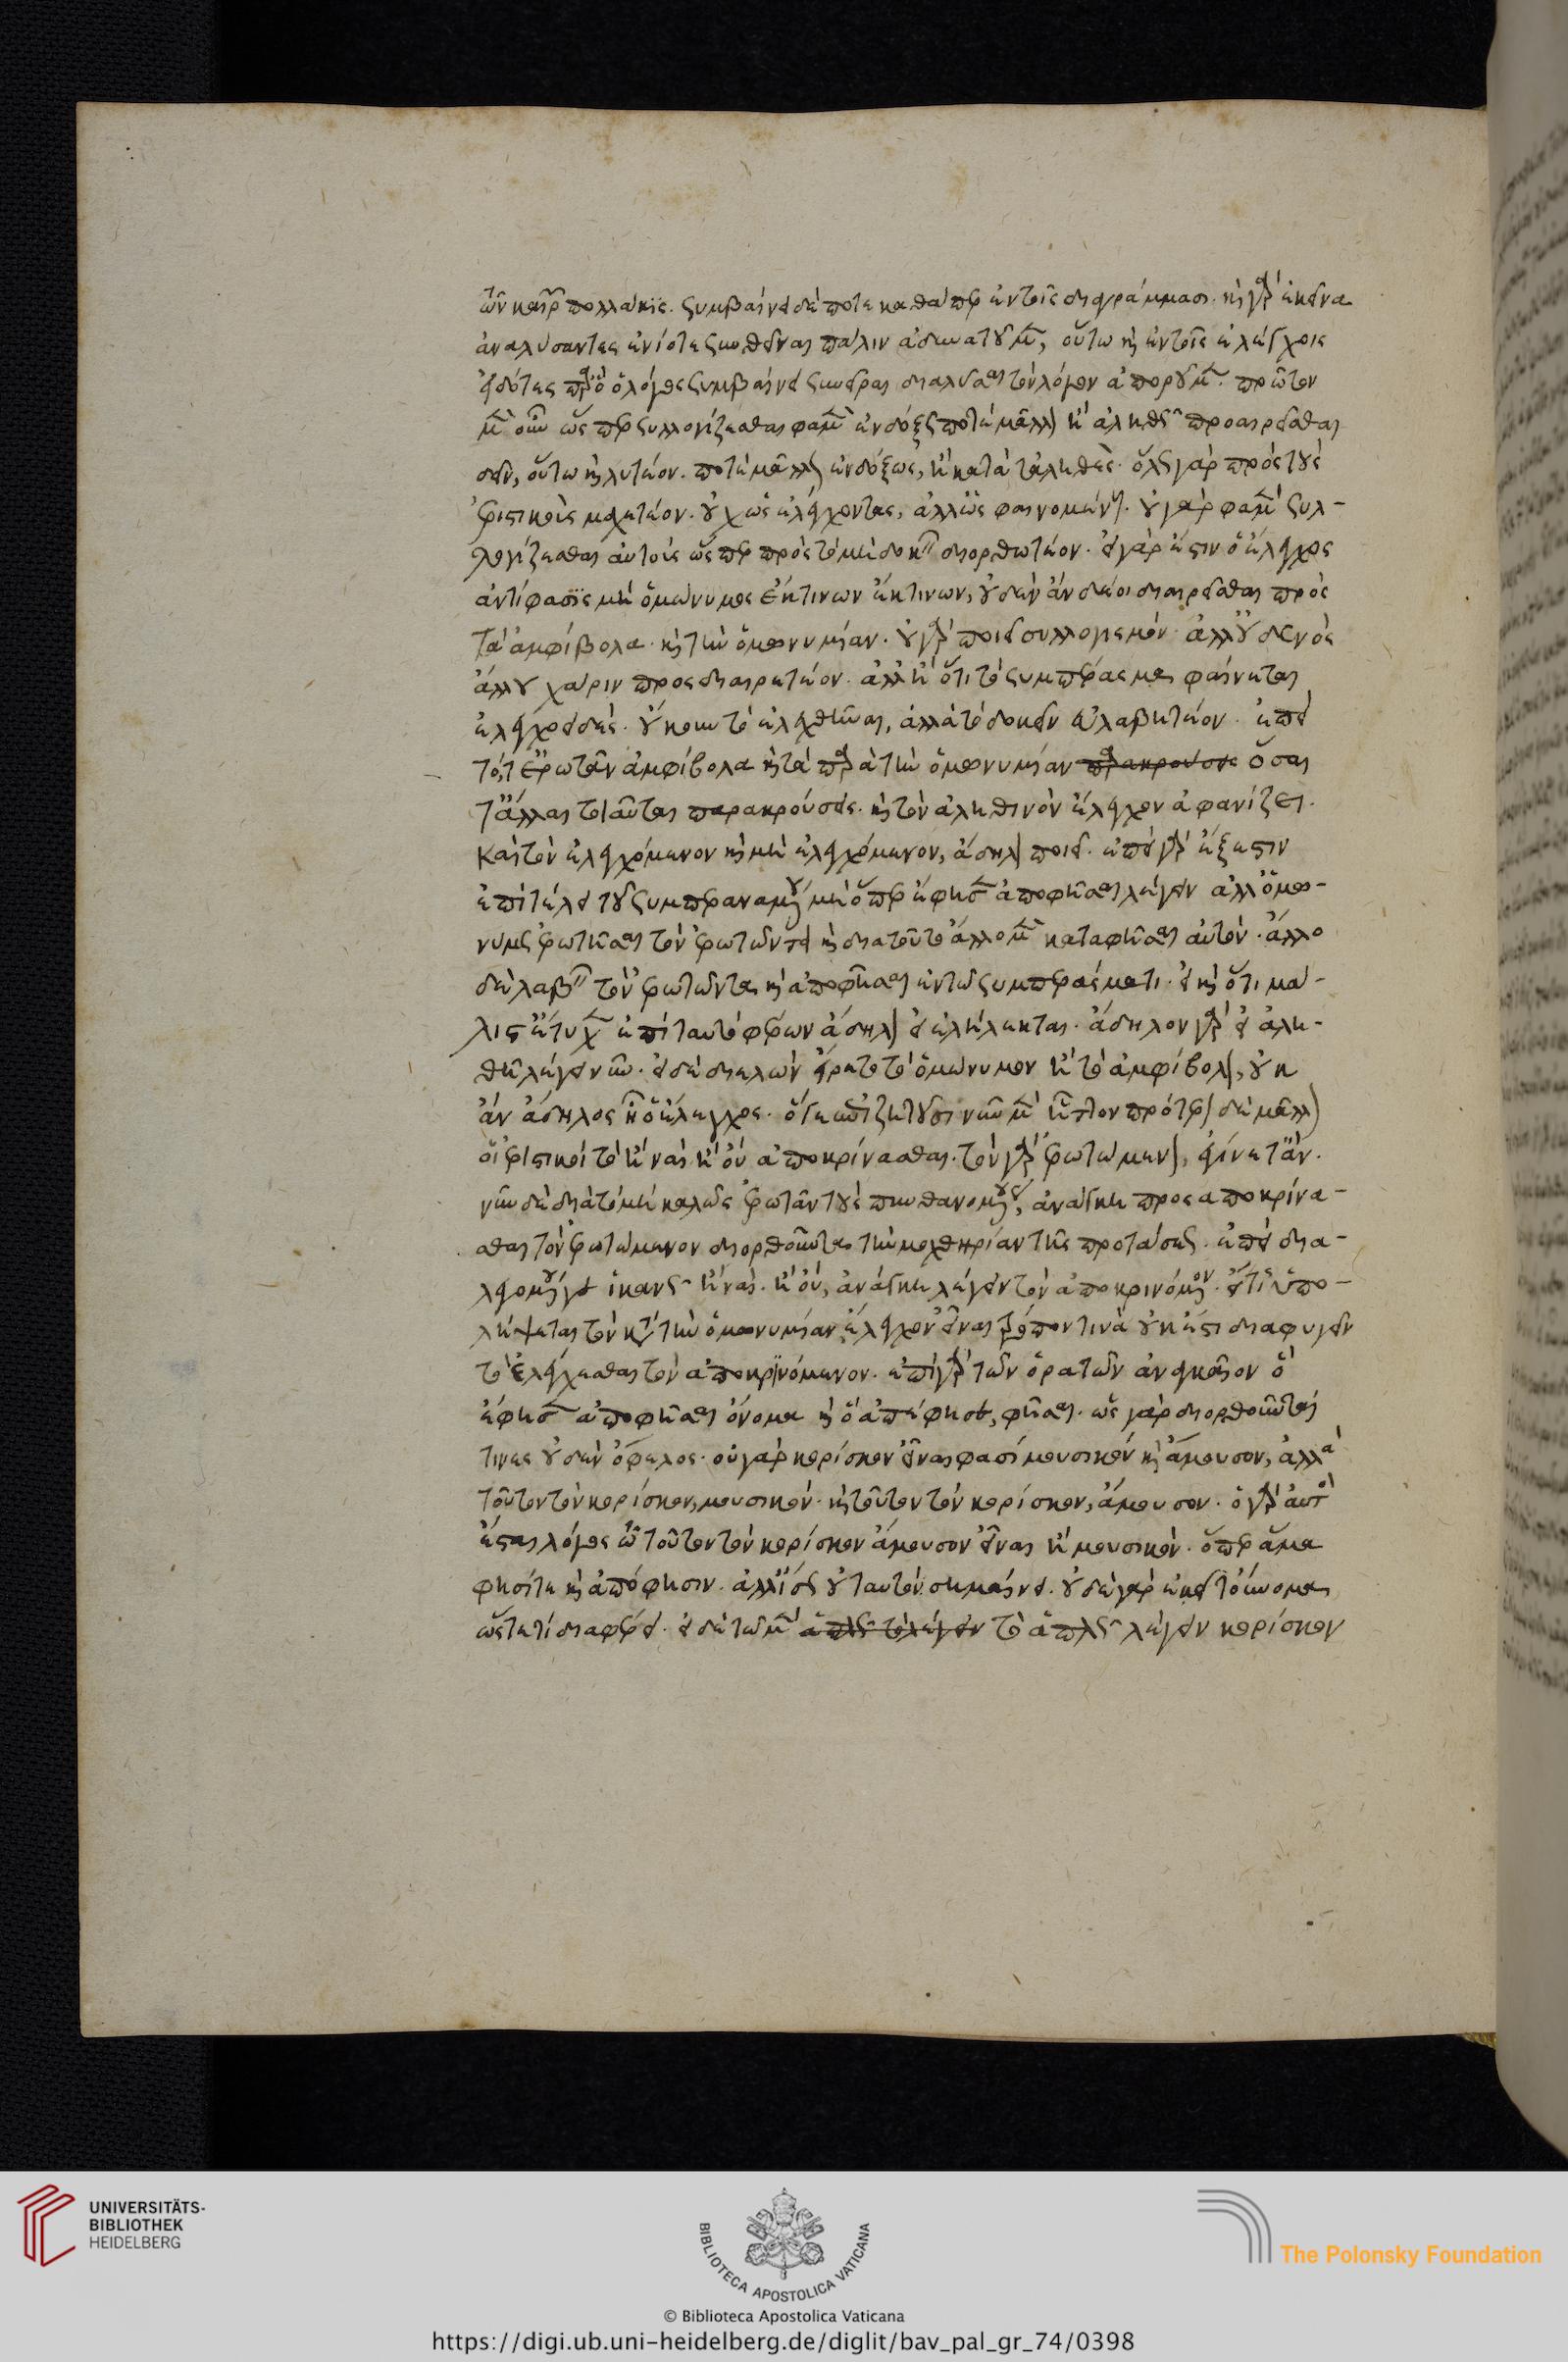 τῶν καιρῶν πολλάκις. συμβαίνει δέ ποτε καθάπερ ἐν τοῖς διαγράμμασι. καὶ γὰρ ἐκεῖνα
ἀναλύσαντες ἐνίοτε συνθεῖναι πάλιν ἀδυνατοῦμεν, οὕτω καὶ ἐν τοῖς ἐλέγχοις
εἰδότες παρ' ὃ ὁ λόγος συμβαίνει συνεῖραι διαλῦσαι τὸν λόγον ἀποροῦμεν. πρῶτον
μὲν οὖν ὥσπερ συλλογίζεσθαι φαμὲν ἐνδόξως ποτὲ μᾶλλον ἢ ἀληθῶς προαιρεῖσθαι
δεῖν, οὕτω καὶ λυτέον. ποτὲ μᾶλλον ἐνδόξως, ἢ κατὰ τἀληθές. ὅλως γὰρ πρὸς τοὺς
ἐριστικοὺς μαχετέον. οὐχ ὡς ἐλέγχοντας, ἀλλ' ὡς φαινομένους. οὐ γὰρ φαμὲν συλ-
λογίζεσθαι αὐτοὺς ὥσπερ πρὸς τὸ μὴ δοκεῖν διορθωτέον. εἰ γάρ ἐστιν ὁ ἔλεγχος
ἀντίφασις μὴ ὁμώνυμος ἐκ τινῶν ἐκ τινων, οὐδὲν ἂν δέοι διαιρεῖσθαι πρὸς
τὰ ἀμφίβολα. καὶ τὴν ὁμωνυμίαν. οὐ γὰρ ποιεῖ συλλογισμόν. ἀλλ' οὐδενὸς
ἄλλου χάριν προσδιαιρετέον. ἀλλ' ἢ ὅτι τὸ συμπέρασμα φαίνεται
ἐλεγχοειδές. οὔκουν τὸ ἐλεγχθῆναι, ἀλλὰ τὸ δοκεῖν εὐλαβητέον. ἐπεὶ
τό, τ' ἐρωτᾶν ἀμφίβολα καὶ τὰ παρὰ τὴν ὁμωνυμίαν παρακρούσε ὅσαι
τ' ἄλλαι τοιαῦται παρακρούσεις. καὶ τὸν ἀληθινὸν ἔλεγχον ἀφανίζει.
καὶ τὸν ἐλεγχόμενον καὶ μὴ ἐλεγχόμενον, ἄδηλον ποιεῖ. ἐπεὶ γὰρ ἔξεστιν
ἐπὶ τέλει τοῦ συμπεραναμένου μὴ ὅπερ ἔφησεν ἀποφῆσαι λέγειν ἀλλ' ὁμω-
νύμως ἐρωτῆσαι τὸν ἐρωτῶντα καὶ διὰ τοῦτο ἄλλο μὲν καταφῆσαι αὐτὸν. ἄλλο
δὲ λαβεῖν τὸν ἐρωτῶντα καὶ ἀποφῆσαι ἐν τῷ συμπεράσματι. εἰ καὶ ὅτι μά-
λιστ' ἔτυχεν ἐπὶ ταυτὸ φέρων ἄδηλον εἰ ἐλήλεκται. ἄδηλον γὰρ εἰ ἀλη-
θῆ λέγει νῦν. εἰ δὲ διελὼν ἤρετο τὸ ὁμώνυμον ἢ τὸ ἀμφίβολον, οὐκ
ἂν ἄδηλος ἦν ὁ ἔλεγχος. ὅ τε ἐπιζητοῦσι νῦν μὲν ἧττον πρότερον δὲ μᾶλλον
οἱ ἐριστικοὶ τὸ ἢ ναὶ ἢ οὒ ἀποκρίνασθαι. τὸν γὰρ ἐρωτώμενον, ἐγίνετ' ἄν.
νῦν δὲ διὰ τὸ μὴ καλῶς ἐρωτᾶν τοὺς πυνθανομένους, ἀνάγκη προσαποκρίνα-
σθαι τὸν ἐρωτώμενον διορθοῦντα τὴν μοχθηρίαν τῆς προτάσεως. ἐπεὶ δια-
λεγομένου γε ἱκανῶς ἢ ναὶ. ἢ οὔ, ἀνάγκη λέγειν τὸν ἀποκρινόμενον. εἴ τις ὑπο-
λήψεται τὸν κατὰ τὴν ὁμωνυμίαν ἔλεγχον εἶναι τρόπον τινὰ οὐκ ἔστι διαφυγεῖν
τὸ ἐλέγχεσθαι τὸν ἀποκρινόμενον. ἐπὶ γὰρ τῶν ὁρατῶν ἀναγκαῖον ὃ
ἔφησεν ἀποφῆσαι ὄνομα καὶ ὃ ἀπέφησε, φῆσαι. ὡς γὰρ διορθοῦνταί
τινες οὐδὲν ὄφελος. οὐ γὰρ κορίσκον εἶναι φασὶ μουσικὸν καὶ ἄμουσον, ἀλλὰ
τοῦτον τὸν κορίσκον, μουσικὸν. καὶ τοῦτον τὸν κορίσκον, ἄμουσον. ὁ γὰρ αὐτὸς
ἔσται λόγος ὧ τοῦτον τὸν κορίσκον ἄμουσον εἶναι ἢ μουσικὸν. ὅπερ ἅμα
φησί τε καὶ ἀπόφησιν. ἀλλ' ἴσως οὐ ταυτὸν σημαίνει. οὐδὲ γὰρ ἐκεῖ τοὔνομα
ὥστε τί διαφέρει. εἰ δὲ τῷ μὲν ἁπλῶς τὸ λέγειν τὸ ἁπλῶς λέγειν κορίσκον
UNIVERSITÄTS-
BIBLIOTHEK
HEIDELBERG
BIBLIOTECA APOSTOLICA VATICANA
The Polonsky Foundation
© Biblioteca Apostolica Vaticana
https://digi.ub.uni-heidelberg.de/diglit/bav_pal_gr_74/0398